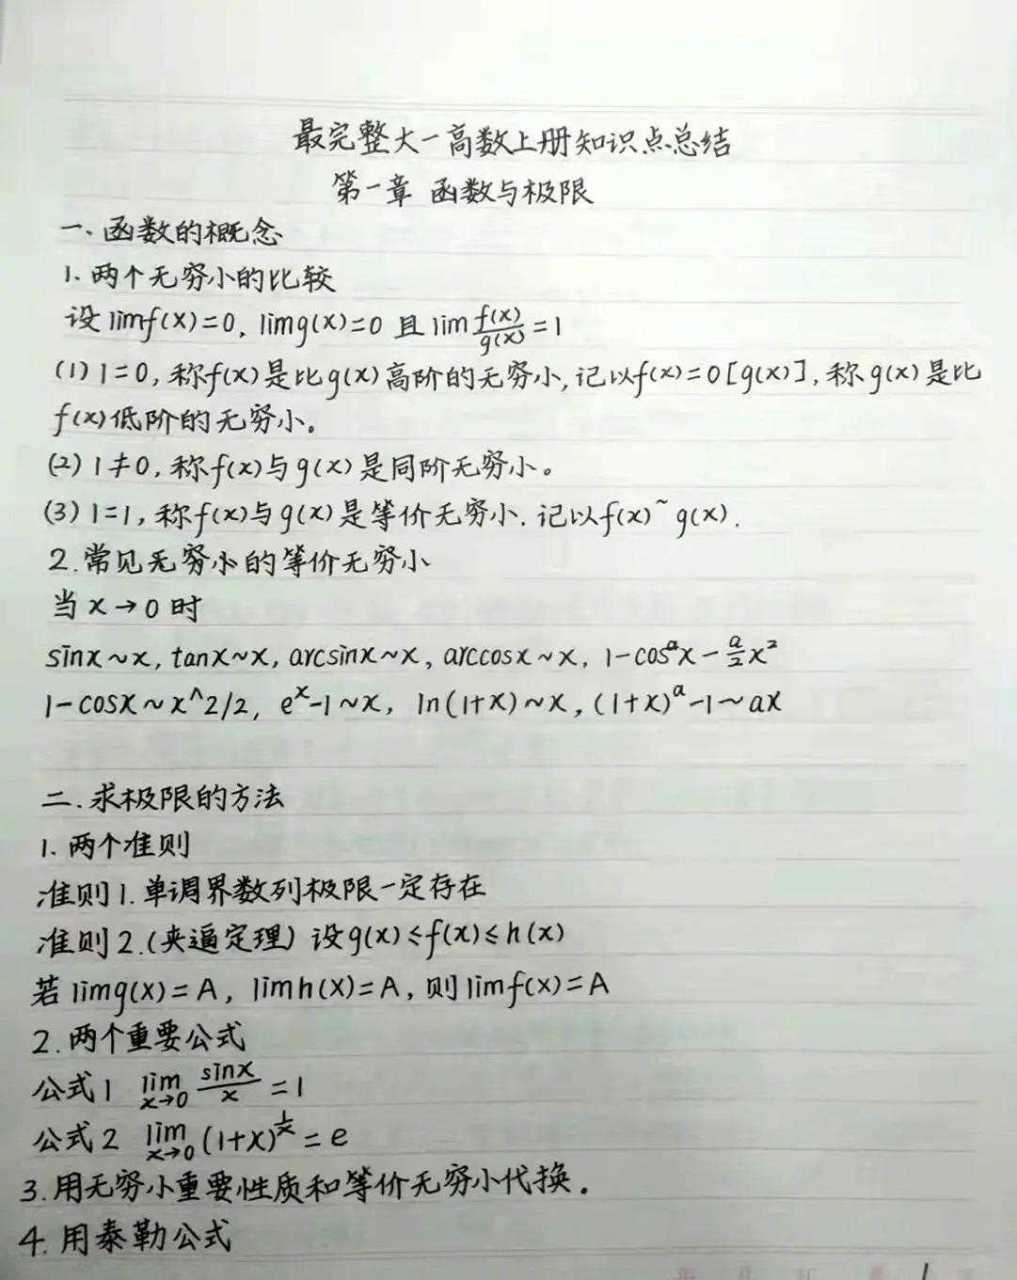 最完整大一高数上册知识点总结
第一章 函数与极限
一、函数的概念
1. 两个无穷小的比较
设limf(x)=0, limg(x)=0 且lim f(x)/g(x) = l
(1) l=0, 称f(x)是比g(x)高阶的无穷小, 记以f(x)=0[g(x)], 称g(x)是比
f(x)低阶的无穷小。
(2) l≠0, 称f(x)与g(x)是同阶无穷小。
(3) l=1, 称f(x)与g(x)是等价无穷小. 记以f(x)~g(x).
2. 常见无穷小的等价无穷小
当 x→0 时
sinx~x, tanx~x, arcsinx~x, arccosx~x, 1-cosᵃx-a/2x²
1-cosx~x^2/2, eˣ-1~x, ln(1+x)~x, (1+x)ᵃ-1~ax
二. 求极限的方法
1. 两个准则
准则1. 单调界数列极限一定存在
准则2.(夹逼定理) 设g(x)≤f(x)≤h(x)
若 limg(x)=A, limh(x)=A, 则limf(x)=A
2. 两个重要公式
公式1 lim x→0 sinx/x = 1
公式2 lim x→0 (1+x)^1/x = e
3. 用无穷小重要性质和等价无穷小代换.
4. 用泰勒公式
1